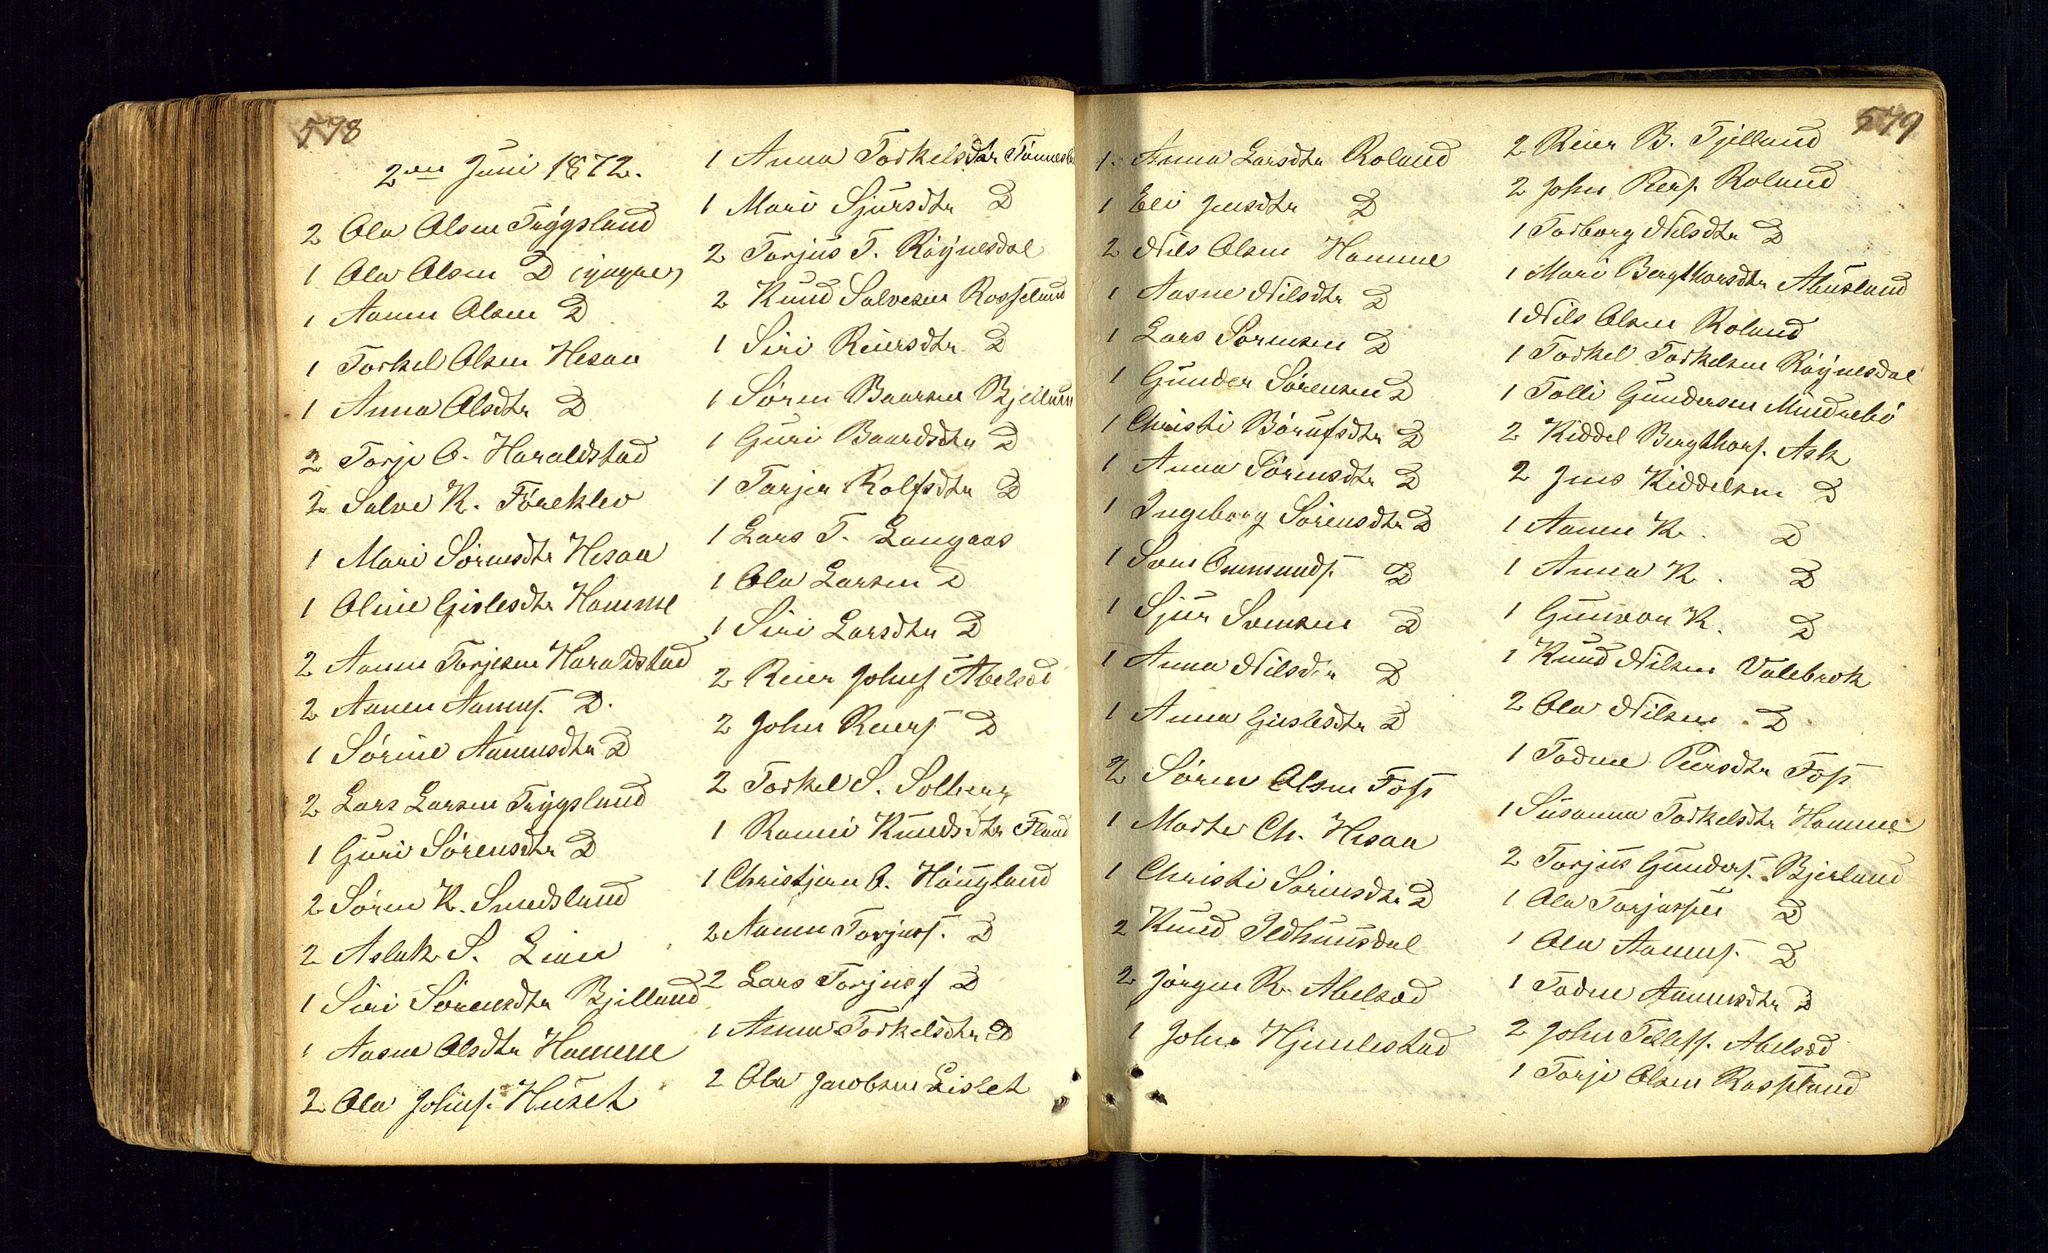 578
2den Juni 1872.
2 Ola Olsen Trygsland
1 Ola Olsen D (yngre)
1 Aanen Olsen D
1 Torkel Olsen Hesaa
1 Anna Olsdtr D
2 Torje O. Haraldstad
2 Salve K. Föreklev
1 Mari Sörensdtr Hesaa
1 Oline Gislesdtr Homme
2 Aanen Torjesen Haraldstad
2 Aanen Aanens. D.
1 Sörine Aanensdtr D
2 Lars Larsen Trygsland
1 Guri Sörensdtr D
2 Sören K. Smedsland
2 Aslak S. Lien
1 Siri Sörensdtr Bjelland
1 Aasne Olsdtr Homme
2 Ola Johns. Huset
1 Anna Torkelsdtr
1 Mari Sjursdtr D
2 Torjus T. Röynesdal
2 Knud Salvesen Rosseland
1 Siri Reiersdtr D
1 Sören Baarsen Bjelland
1 Guri Baardsdtr D
1 Torjer Rolfsdtr D
1 Lars T. Langaas
1 Ola Larsen D
1 Siri Larsdtr D
2 Reier Johns. Abelsæd
2 John Reiers. D
2 Torkel S. Solberg
1 Rannei Knudsdtr Fland
1 Christjan O. Höugland
2 Aanen Torjuss. D
2 Lars Torjuss. D
1 Anna Torkelsdtr D
2 Ola Jacobsen Lislet
579
1. Anna Larsdtr Roland
1 Eli Jensdtr D
2 Nils Olsen Homme
1 Aasne Nilsdtr D
1 Lars Sörensen D
1 Gunder Sörensen D
1 Christi Börufsdtr D
1 Anna Sörensdtr D
1 Ingeborg Sörensdtr D
1 Sven Ommunds. D
1 Sjur Svensen D
1 Anna Nilsdtr D
1 Anna Gislesdtr D
2 Sören Olsen Foss
1 Marte Ch. Hesaa
1 Christi Sörensdtr D
2 Knud Ildhuusdal
2 Jörgen R. Abelsæd
1 John Hjemlestad
2 Reier B. Fjelland
2 John Reiers. Roland
1 Torborg Nilsdtr D
1 Mari Bergthorsdtr Ahusland
1 Nils Olsen Roland
1 Torkel Torkelsen Röynesdal
1 Tolli Gundersen Mindrebö
2 Kiddel Bergthors. Ask
2 Jens Kiddelsen D
1 Aanen K. D
1 Anna K. D
1 Gunvor K. D
1 Knud Nilsen Valebrok
2 Ola Nilsen D
1 Todne Peersdtr Foss
1 Susanna Torkelsdtr Homme
2 Torjus Gunders. Bjerland
1 Ola Torjussen D
1 Ola Aanens. D
1 Todne Aanensdtr D
2 John Tellefs. Abelsæd
1 Torje Olsen Rosseland